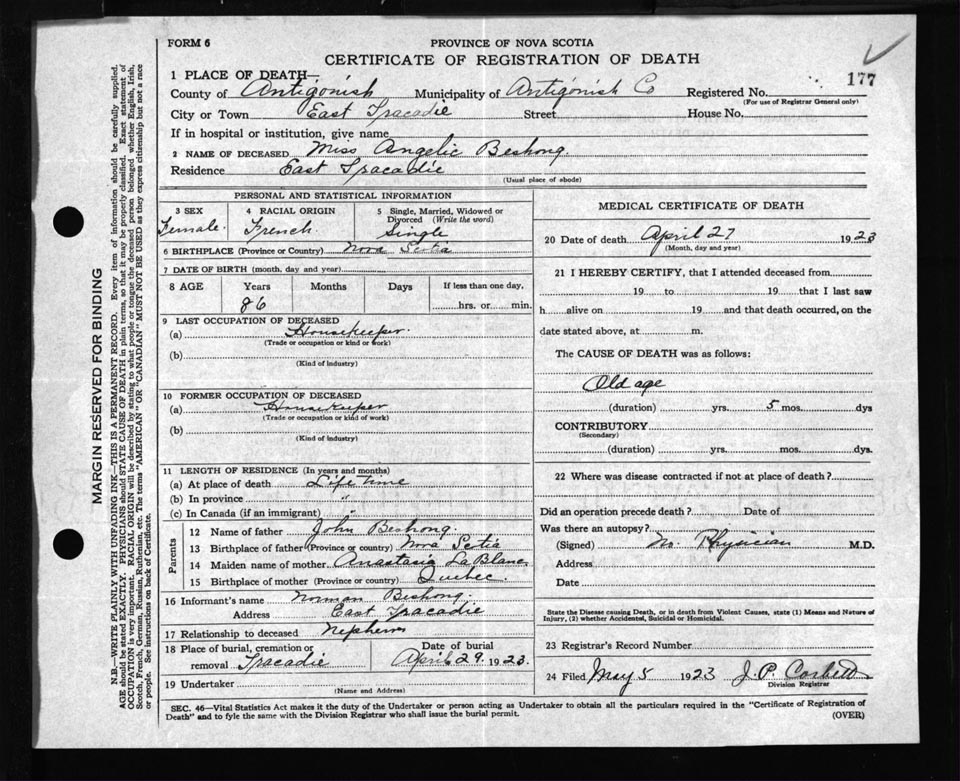 FORM 6
PROVINCE OF NOVA SCOTIA
CERTIFICATE OF REGISTRATION OF DEATH
177
1 PLACE OF DEATH—
County of Antigonish Municipality of Antigonish Co Registered No.
(For use of Registrar General only)
City or Town East Tracadie Street House No.
If in hospital or institution, give name
2 NAME OF DECEASED Miss Angelic Beshong.
Residence East Tracadie
(Usual place of abode)
MARGIN RESERVED FOR BINDING
N.B.—WRITE PLAINLY WITH UNFADING INK—THIS IS A PERMANENT RECORD. Every item of information should be carefully supplied.
AGE should be stated EXACTLY. PHYSICIANS should STATE CAUSE OF DEATH in plain terms, so that it may be properly classified. Exact statement of
OCCUPATION is very important. RACIAL ORIGIN will be described by stating to what people or tongue the deceased person belonged whether English, Irish,
Scotch, French, German, Russian, Ruthenian, etc. The terms "AMERICAN" OR "CANADIAN" MUST NOT BE USED as they express citizenship but not a race
or people. See instructions on back of Certificate.
PERSONAL AND STATISTICAL INFORMATION
3 SEX
Female.
4 RACIAL ORIGIN
French
5 Single, Married, Widowed or
Divorced (Write the word)
Single
6 BIRTHPLACE (Province or Country) Nova Scotia
7 DATE OF BIRTH (month, day and year)
8 AGE Years Months Days If less than one day,
86 hrs. or min.
9 LAST OCCUPATION OF DECEASED
(a) Housekeeper.
(Trade or occupation or kind or work)
(b)
(Kind of industry)
10 FORMER OCCUPATION OF DECEASED
(a) Housekeeper
(Trade or occupation or kind of work)
(b)
(Kind of Industry)
11 LENGTH OF RESIDENCE (In years and months)
(a) At place of death Life time
(b) In province "
(c) In Canada (if an immigrant) "
Parents
12 Name of father John Beshong.
13 Birthplace of father (Province or country) Nova Scotia
14 Maiden name of mother Anastasia La Blanc
15 Birthplace of mother (Province or country) Quebec.
16 Informant's name Norman Beshong.
Address East Tracadie
17 Relationship to deceased Nephew
18 Place of burial, cremation or
removal Tracadie
Date of burial
April 29. 1923.
19 Undertaker
(Name and Address)
MEDICAL CERTIFICATE OF DEATH
20 Date of death April 27 1923
(Month, day and year)
21 I HEREBY CERTIFY, that I attended deceased from
19 to 19 that I last saw
h alive on 19 and that death occurred, on the
date stated above, at m.
The CAUSE OF DEATH was as follows:
Old age
(duration) yrs. 5 mos. dys
CONTRIBUTORY
(Secondary)
(duration) yrs. mos. dys
22 Where was disease contracted if not at place of death?
Did an operation precede death? Date of
Was there an autopsy?
(Signed) No. Physician M.D.
Address
Date
State the Disease causing Death, or in death from Violent Causes, state (1) Means and Nature of
Injury, (2) whether Accidental, Suicidal or Homicidal.
23 Registrar's Record Number
24 Filed May 5 1923 J. P. Corbett
Division Registrar
SEC. 46—Vital Statistics Act makes it the duty of the Undertaker or person acting as Undertaker to obtain all the particulars required in the "Certificate of Registration of
Death" and to fyle the same with the Division Registrar who shall issue the burial permit.
(OVER)